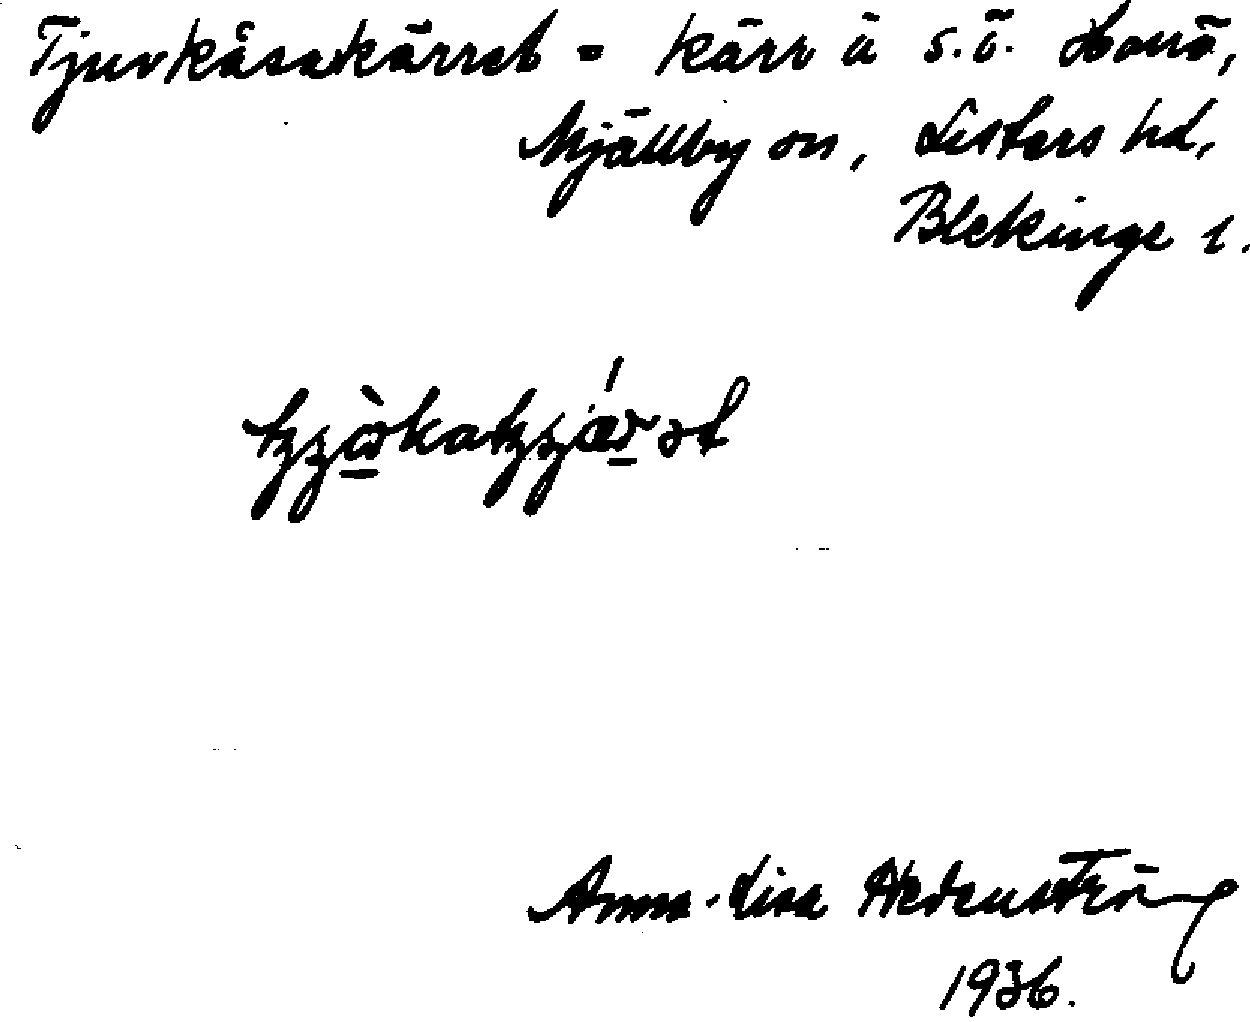 Tjuvkåsakärret = kärr å s.ö. Hanö,
Mjällby sn, Listers hd,
Blekinge l.
Anna-Lisa Hedenström
1936.